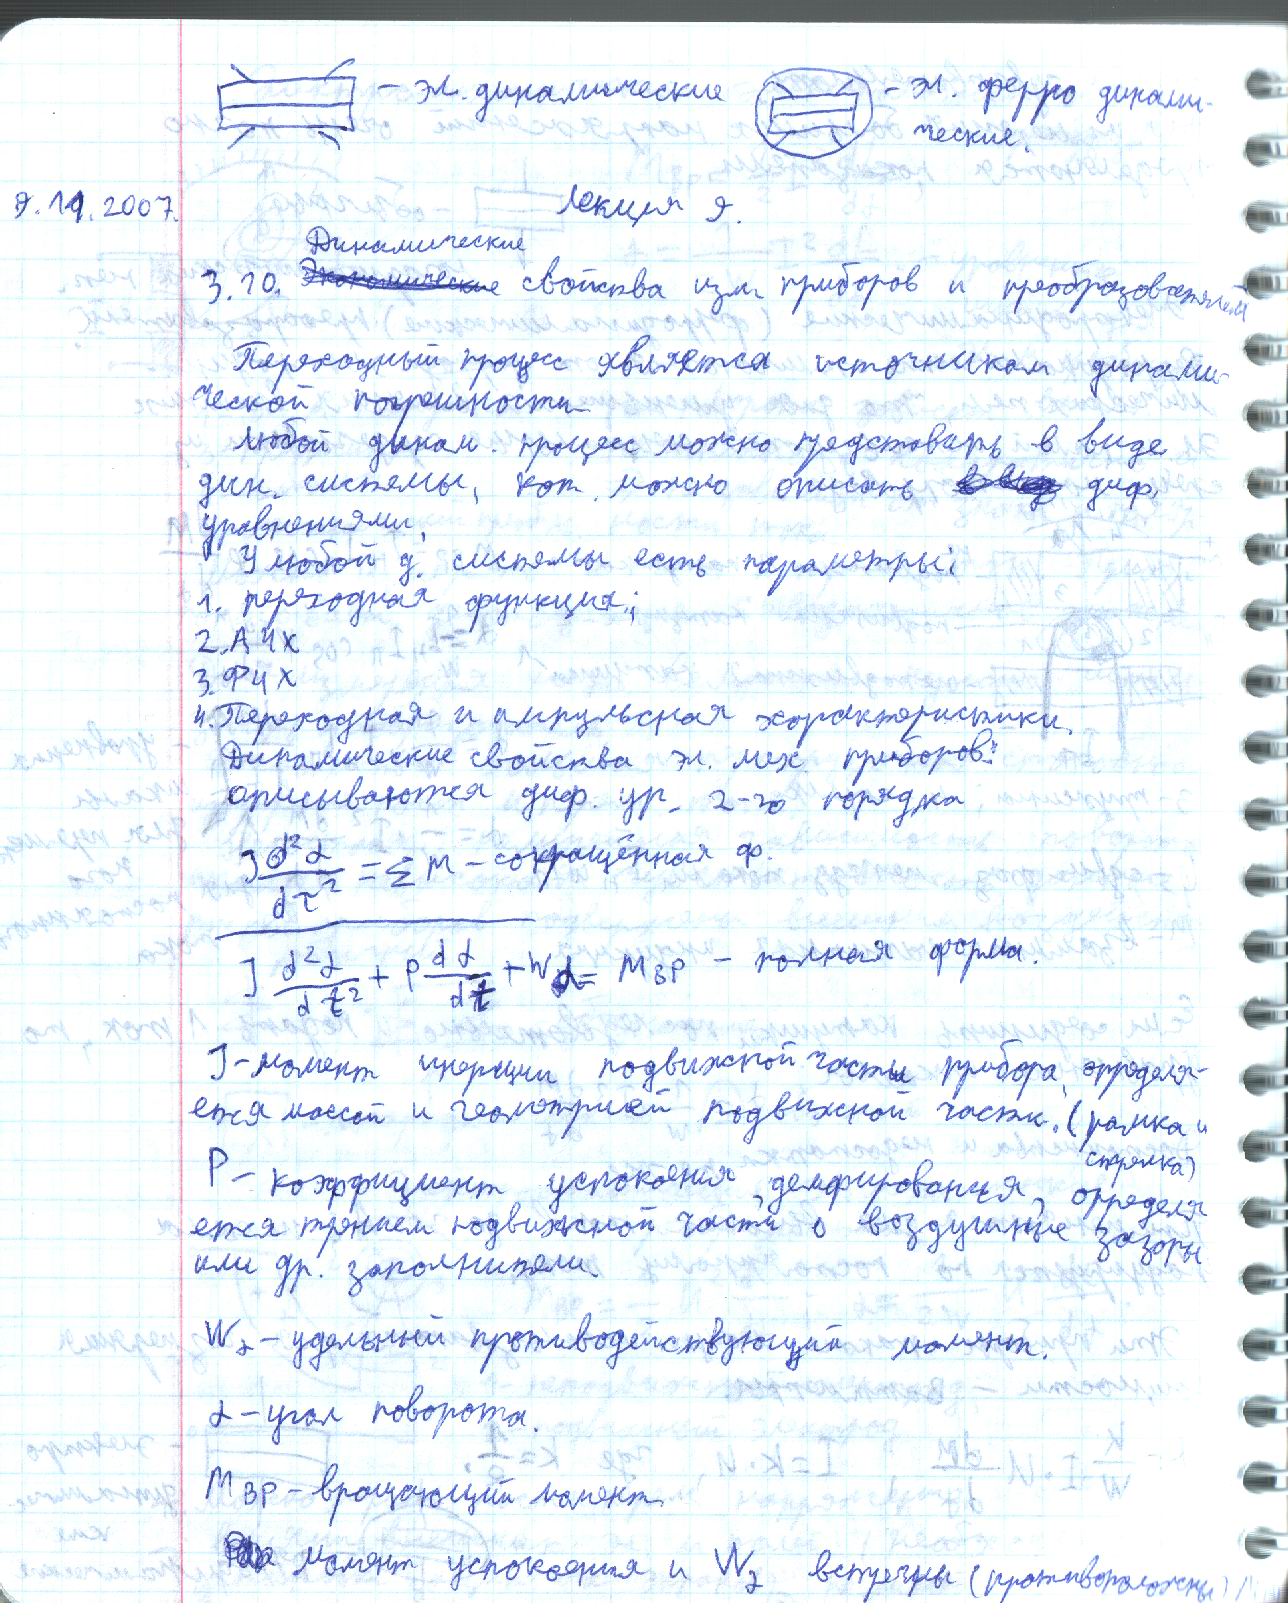 – эл. динамические – эл. ферро динами-
ческие.
9.11.2007. Лекция 9.
Динамические
3.10. Экономические свойства изм приборов и преобразователей
Переходный процесс является источником динами-
ческой погрешности
Любой динам. процесс можно представить в виде
дин. системы, кот. можно описать диф.
уравнениями.
У любой д. системы есть параметры:
1. переходная функция;
2. АЧХ
3. ФЧХ
4. Переходная и импульсная характеристики.
Динамические свойства эл. мех. приборов:
описываются диф. ур. 2-го порядка
J d²α/dτ² = Σ M – сокращённая ф.
J d²α/dt² + P dα/dt + Wα = Mвр – полная форма.
J – момент инерции подвижной части прибора, определя-
ется массой и геометрией подвижной части. (рамка и
стрелка)
P – коэффициент успокоения, демфирования, определя
ется трением подвижной части о воздушные зазоры
или др. заполнители.
W₂ – удельный противодействующий момент.
α – угол поворота.
Mвр – вращающий момент
момент успокоения и W₂ встречны (противоположны)